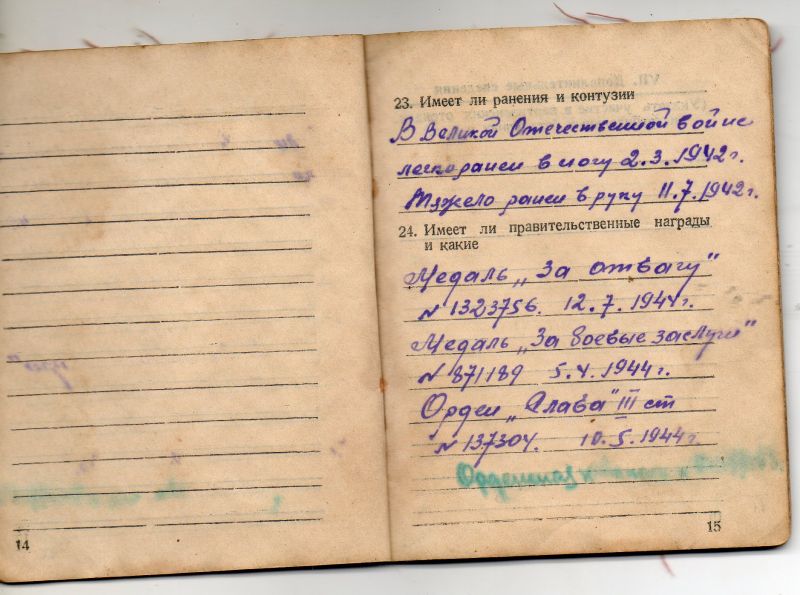 23. Имеет ли ранения и контузии
В Великой Отечественной войне
легко ранен в ногу 2.3.1942 г.
Тяжело ранен в руку 11.7.1942 г.
24. Имеет ли правительственные награды
и какие
Медаль „За отвагу"
N 1323756. 12.7.1944 г.
Медаль „За боевые заслуги"
N 871189 5.4.1944 г.
Орден „Слава" III ст
N 137304. 10.5.1944 г
Орденская
14
15